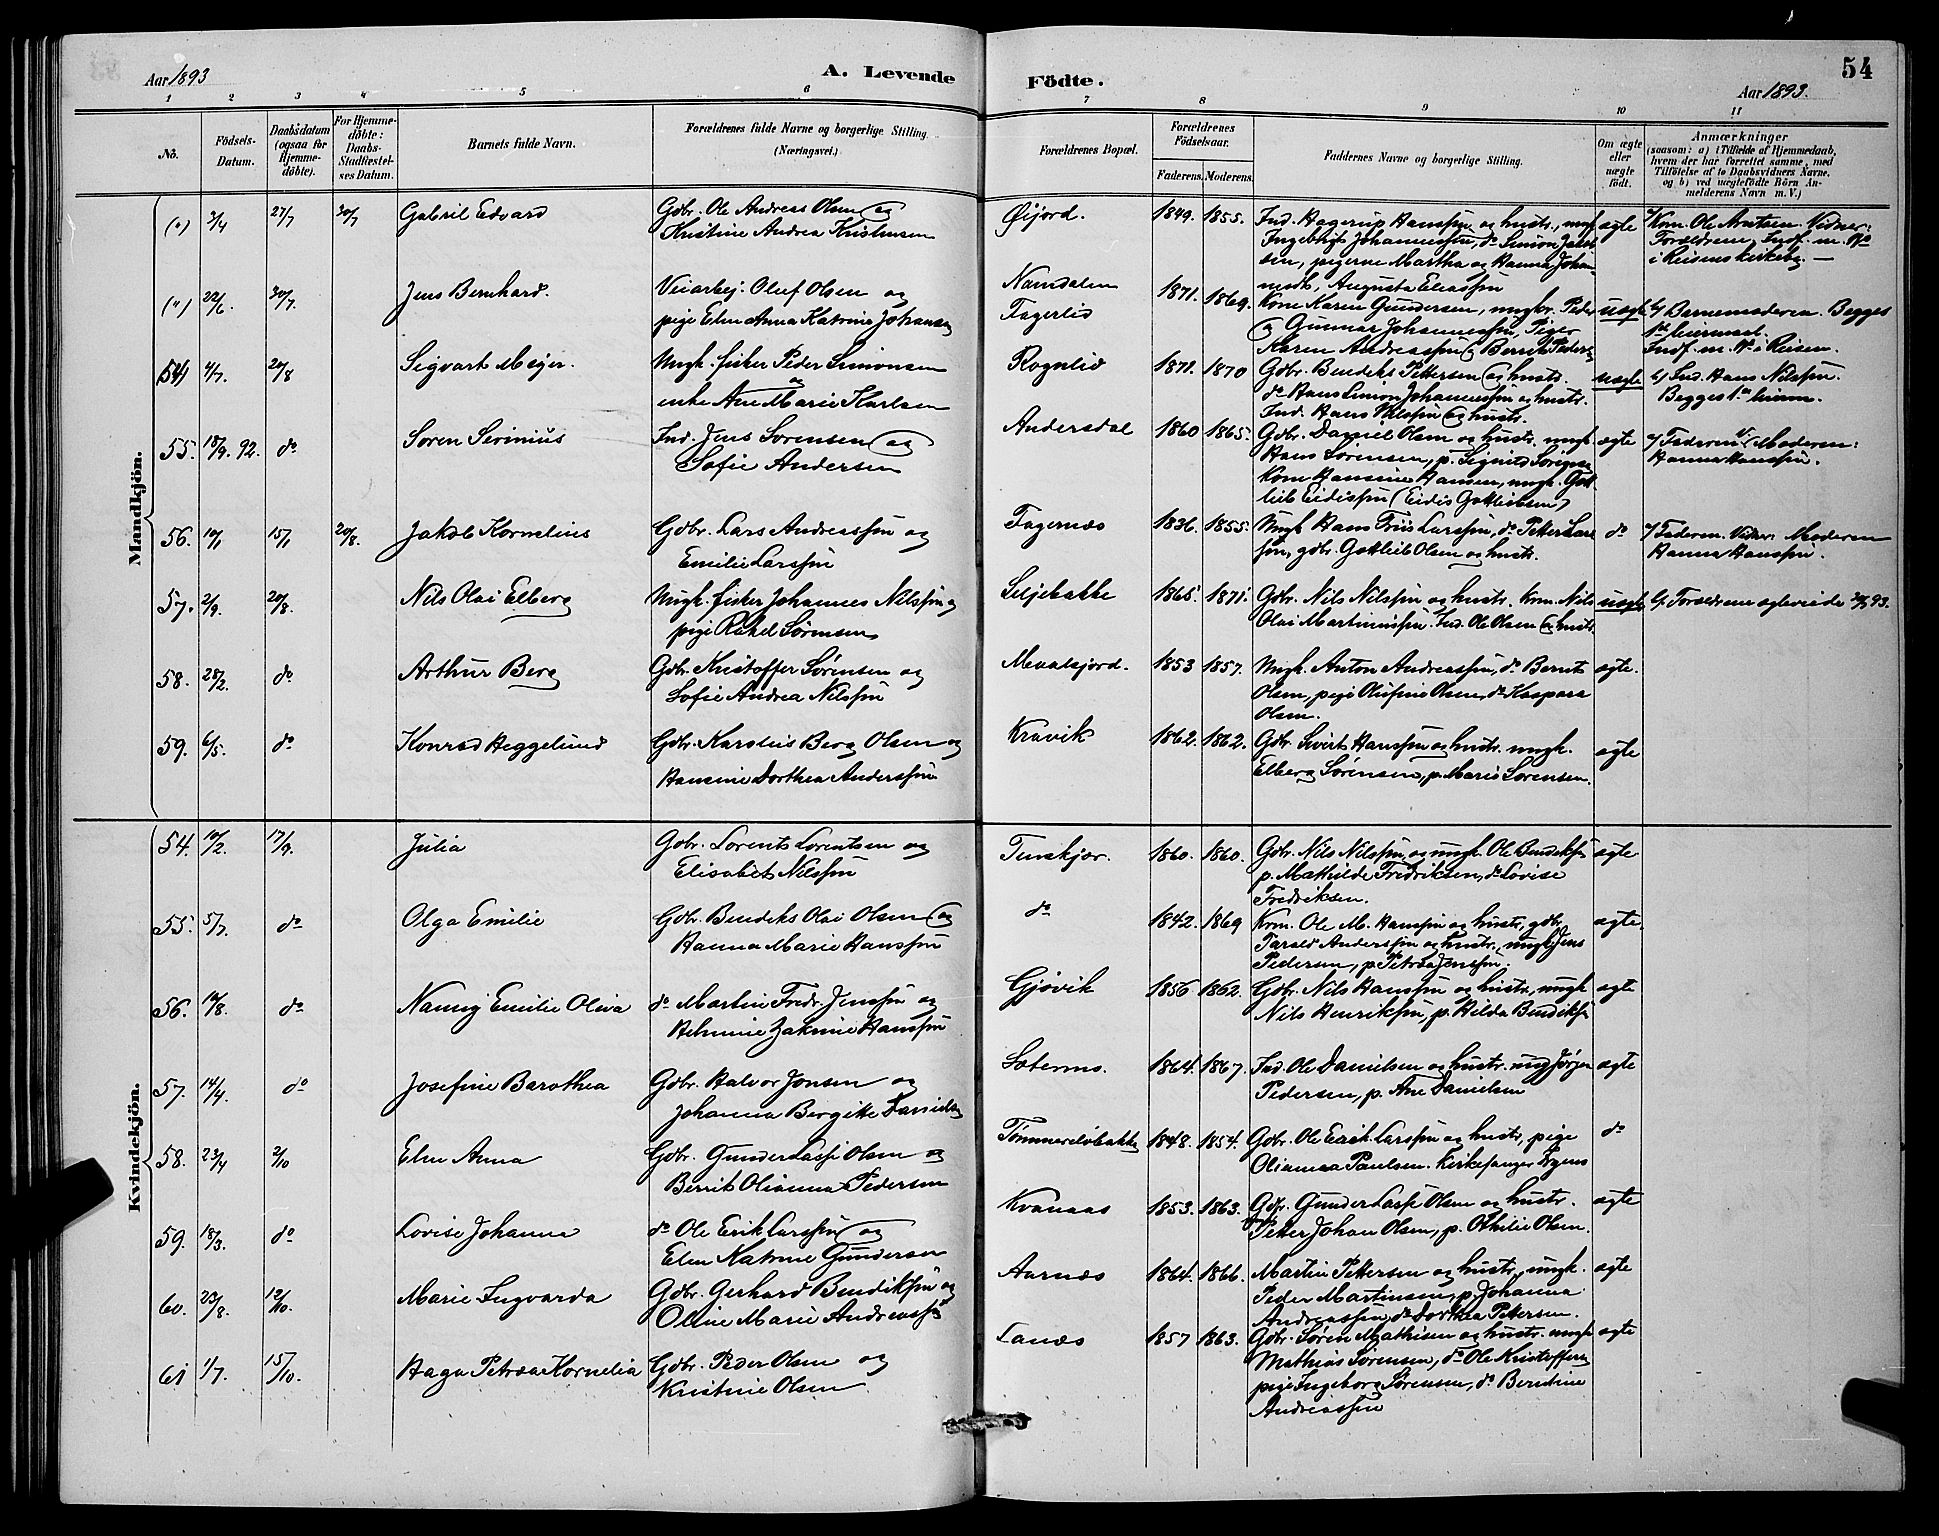 Aar 1893
A. Levende
Födte.
54
Aar 1893.
1 2 3 4 5 6 7 8 9 10 11
No.
Födsels-
Datum.
Daabsdatum
(ogsaa for
Hjemme-
döbte).
For Hjemme-
döbte:
Daabs-
Stadfæstel-
ses Datum.
Barnets fulde Navn.
Forældrenes fulde Navne og borgerlige Stilling
(Næringsvei.)
Forældrenes Bopæl.
Forældrenes
Födselsaar.
Faderens. Moderens.
Faddernes Navne og borgerlige Stilling.
Om ægte
eller
uægte
födt.
Anmærkninger
(saasom: a) i Tilfælde af Hjemmedaab,
hvem der har forrettet samme, med
Tilföielse af to Daabsvidners Navne,
og b) ved uægtefödte Börn An-
melderens Navn m. V.)
Mandkjön.
27/7 30/7 Gabriel Edvard
Gdbr. Ole Andreas Olsen og
Kristine Andrea Kristensen
Øijord. 1849. 1855.
Ind. Hagerup Hanssen og hustr., ungk.
Ingebrigt Johannessen, do Simon Jakob-
sen, pigerne Martha og Hanna Johan-
Augusta Eliassen
ægte
Kom. Ole Arntsen. Vidner:
Forældrene. Indf. m. No
i Reisens kirkebog.
22/6 30/7 Jens Bernhard.
Veiarbej. Oluf Olsen og
pige Elen Anna Katrine Johansen
Namdalen
Fagerlid 1871. 1869.
Kone Karen Gundersen, ungkr. Peder
og Gunnar Johannessen, Piger
Karen Andreassen og Berit Peders
uægte
b/ Barnemoderen. Begges
1ste leiermaal.
Indf. m. No i Reisen.
54) 4/7. 20/8 Sigvart Meyer.
Ungk. fisker Peder Simonsen
og
enke Ane Marie Karlsen
Rognlid 1871. 1870
Gdbr. Bendiks Pettersen og hustr.
do Hans Simon Johannessen og hustr.
Ind. Hans Nilssen og hustr.
uægte
b/ Ind. Hans Nilssen.
Begges 1ste leierm.
55. 18/9. 92. do Søren Serinius
Ind. Jens Sørensen og
Sofie Andersen
Andersdal 1860 1865.
Gdbr. Daniel Olsen og hustr. ungk.
Hans Sørensen, p. Sigrid Sørensen
Kone Hansine Hansen, ungk. Got-
lieb Eidissen (Eidis Gottliebsen)
ægte
a/ Faderen. V. Moderen:
Hanna Hanssen.
56. 10/1 15/1 20/8. Jakob Kornelius
Gdbr. Lars Andreassen og
Emilie Larssen
Fagernæs 1836. 1855.
Ungk Hans Friis Larssen, do Petter Lars-
sen, gdbr. Gottlieb Olsen og hustr.
do
a/ Faderen. Vidner: Moderen
Hanna Hanssen.
57. 2/9. 20/8. Nils Olai Elberg
Ungk. fisker Johannes Nilssen og
pige Rakel Sørensen
Seljebakke 1865 1871.
Gdbr. Nils Nilssen og hustr. Kom. Nils
Olai Martinussen. Ind. Ole Olsen og hustr.
uægte
b/ Forældrene ægteviede 93.
58. 28/2. do Arthur Berg
Gdbr. Kristoffer Sørensen og
Sofie Andrea Nilssen
1853 1857.
Ungk. Anton Andreassen, do Bernt
Olsen, pige Olufine Olsen, do Kaspara
Olsen.
ægte.
59. 6/5. do Konrad Heggelund
Gdbr. Karstens Berg Olsen og
Hansine Dorthea Anderssen
Kravik 1862. 1862.
Gdbr. Sivert Hanssen og hustr. ungk.
Elberg Sørensen, p. Marie Sørensen.
ægte
Kvindekjön.
54. 10/2. 17/9. Julia
Gdbr. Lorents Lorentsen og
Elisabet Nilssen
Turskjær. 1860. 1860.
Gdbr. Nils Nilssen og ungk. Ole Bendiks
p. Mathilde Fredriksen, do Lovise
Fredriksen.
ægte
55. 5/7. do Olga Emilie
Gdbr. Bendiks Olai Olsen og
Hanna Marie Hanssen
do 1842. 1869
Kom. Ole M. Hanssen og hustr, gdbr.
Tarald Anderssen og hustr., ungk. Jens
Pedersen, p. Petra Jenssen.
ægte.
56. 14/8. do Nanny Emilie Oliva
do Martin Fredr. Jenssen og
Helmine Zakrine Hanssen
Gjøvik 1856 1862.
Gdbr. Nils Hanssen og hustr., ungk
Nils Henriksen, p. Hilda Bendiks
ægte
57. 14/4. do Josefine Barothea
Gdbr. Halvor Jonsen og
Johanna Bergitte Daniels
1864. 1867.
Ind. Ole Danielsen og hustr. ungk Jørgen
Pedersen, p. Ane Danielsen
ægte
58. 23/4 2/10 Elen Anna
Gdbr. Gunder Lassi Olsen og
Berrit Olianna Pedersen
Tømmerelvbakke 1848. 1854.
Gdbr. Ole Erik Larssen og hustr, pige
Olianna Paulsen. Kirkesanger Irgens
do
59. 18/3. do Lovise Johanna
do Ole Erik Larssen og
Elen Katrine Gundersen
Kvanaas 1853. 1863.
Gdbr. Gunder Lassi Olsen og hustr.
Petter Johan Olsen, p. Othilie Olsen.
ægte
60. 23/8. 12/10. Marie Ingvarda
Gdbr. Gerhard Bendiksen og
Oline Marie Andreassen
Aarnæs 1864. 1866.
Martin Pettersen og hustr, ungk.
Peder Martinsen, p. Johanna
Andreassen, do Dorthea Pettersen.
ægte
61 1/7. 15/10. Haga Petræa Kornelia
Gdbr. Peder Olsen og
Kristine Olsen
Lanæs 1857 1863.
Gdbr. Søren Mathisen og hustr. ungk
Mathias Sørensen, do Ole Kristoffersen
pige Ingeborg Sørensen, do Berntine
Andreassen
ægte